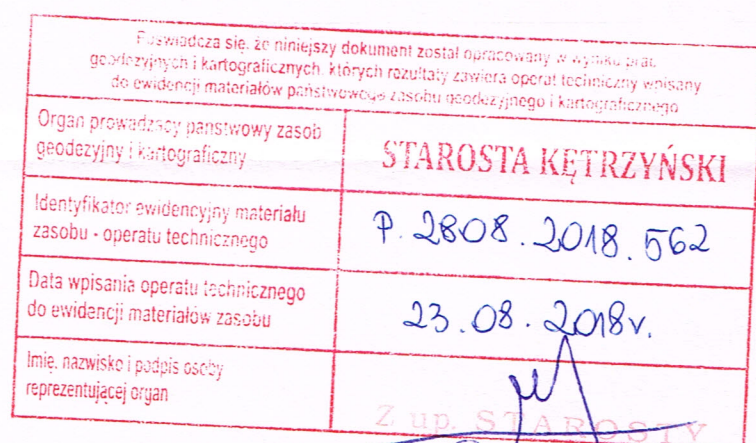 Poświadcza się, że niniejszy dokument został opracowany w wyniku prac
geodezyjnych i kartograficznych, których rezultaty zawiera operat techniczny wpisany
do ewidencji materiałów państwowego zasobu geodezyjnego i kartograficznego
Organ prowadzący państwowy zasób
geodezyjny i kartograficzny
STAROSTA KĘTRZYŃSKI
Identyfikator ewidencyjny materiału
zasobu - operatu technicznego
P. 2808. 2018. 562
Data wpisania operatu technicznego
do ewidencji materiałów zasobu
23. 08. 2018r.
Imię, nazwisko i podpis osoby
reprezentującej organ
Z up. STAROSTY